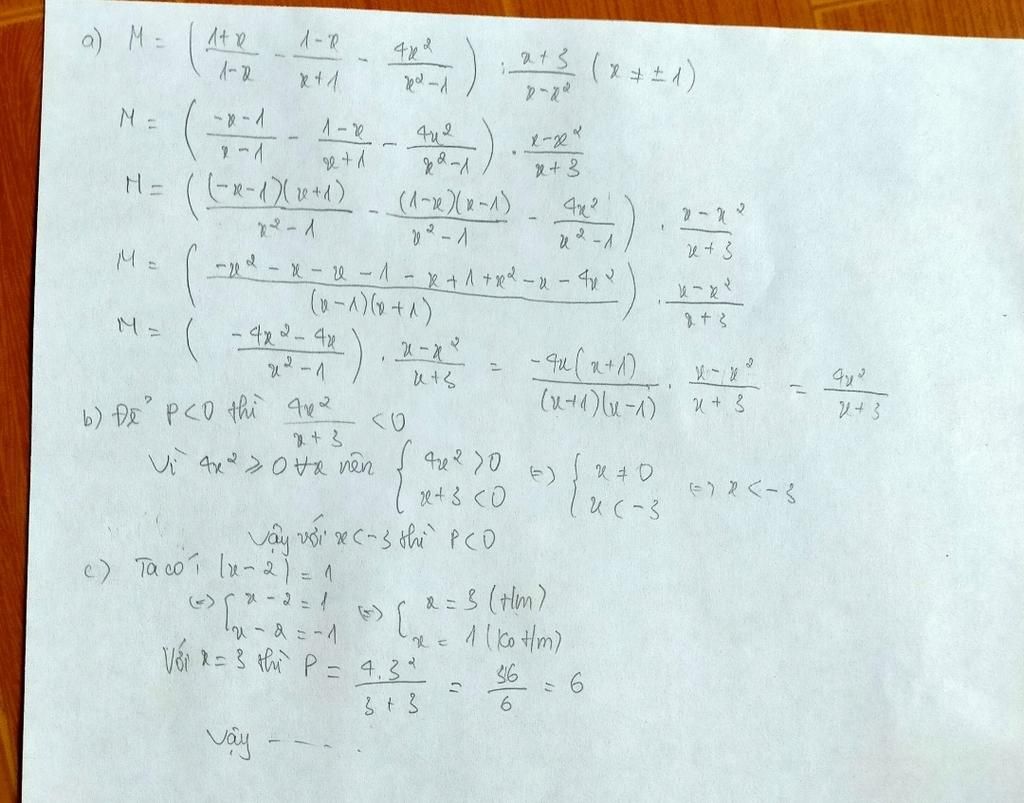 a) M = ( (1+x)/(1-x) - (1-x)/(x+1) - 4x²/(x²-1) ) : (x+3)/(x-x²) (x ≠ ±1)
M = ( (-x-1)/(x-1) - (1-x)/(x+1) - 4x²/(x²-1) ) . (x-x²)/(x+3)
M = ( (-x-1)(x+1)/(x²-1) - (1-x)(x-1)/(x²-1) - 4x²/(x²-1) ) . (x-x²)/(x+3)
M = ( (-x² - x - x - 1 - x + 1 + x² - x - 4x²)/((x-1)(x+1)) ) . (x-x²)/(x+3)
M = ( (-4x² - 4x)/(x²-1) ) . (x-x²)/(x+3) = -4x(x+1)/((x+1)(x-1)) . (x-x²)/(x+3) = 4x²/(x+3)
b) Để P<0 thì 4x²/(x+3) <0
Vì 4x² ⩾ 0 ∀x nên { 4x² >0 ; x+3 <0 <=> { x ≠ 0 ; x < -3 <=> x < -3
Vậy với x<-3 thì P<0
c) Ta có: |x-2| = 1
<=> [ x-2 = 1 ; x-2 = -1 <=> [ x = 3 (t/m) ; x = 1 (ko t/m)
Với x = 3 thì P = 4.3²/(3+3) = 36/6 = 6
Vậy ----- .